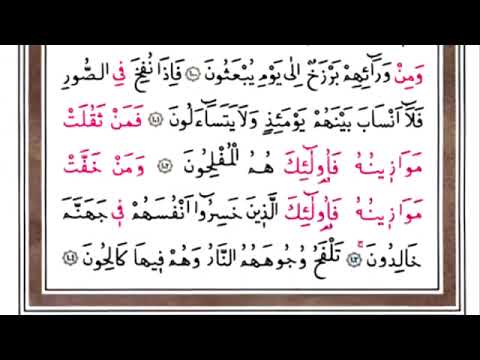 وَمِنْ وَرَٓائِهِمْ بَرْزَخٌ اِلٰى يَوْمِ يُبْعَثُونَ ﴿١٠٠﴾ فَاِذَا نُفِخَ فِي الصُّورِ
فَلَٓا اَنْسَابَ بَيْنَهُمْ يَوْمَئِذٍ وَلَا يَتَسَٓاءَلُونَ ﴿١٠١﴾ فَمَنْ ثَقُلَتْ
مَوَاز۪ينُهُ فَاُو۬لٰٓئِكَ هُمُ الْمُفْلِحُونَ ﴿١٠٢﴾ وَمَنْ خَفَّتْ
مَوَاز۪ينُهُ فَاُو۬لٰٓئِكَ الَّذ۪ينَ خَسِرُٓوا اَنْفُسَهُمْ ف۪ي جَهَنَّمَ
خَالِدُونَ ﴿١٠٣﴾ تَلْفَحُ وُجُوهَهُمُ النَّارُ وَهُمْ ف۪يهَا كَالِحُونَ ﴿١٠٤﴾